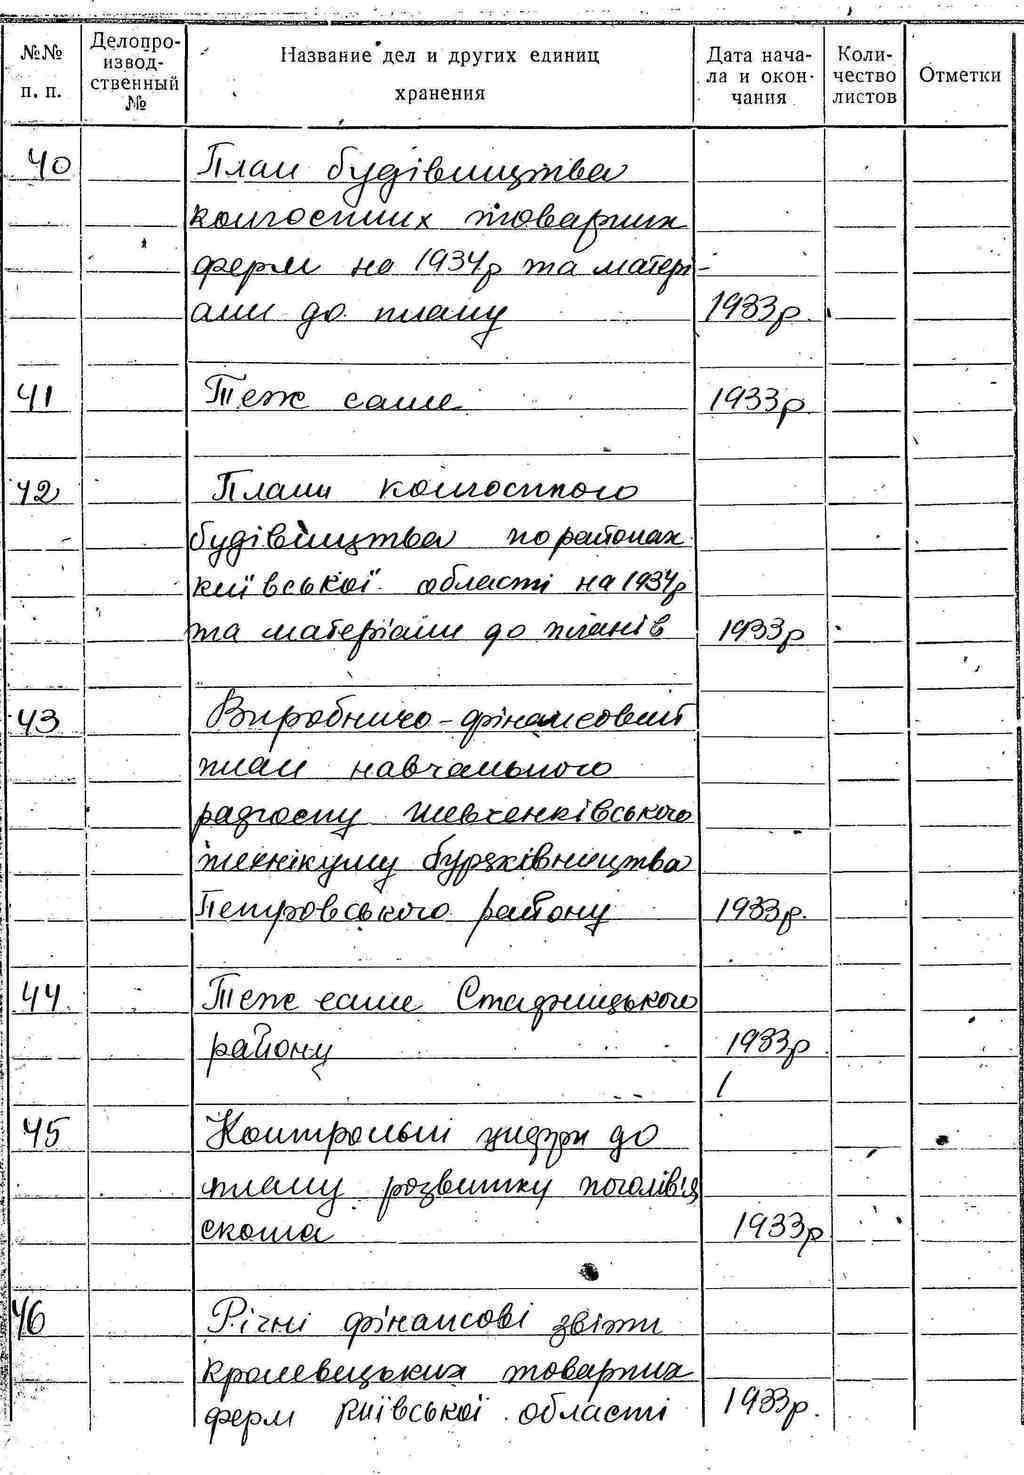 №№ п. п.
Делопро-
извод-
ственный
№
Название дел и других единиц
хранения
Дата нача-
ла и окон-
чания
Коли-
чество
листов
Отметки
40
План будівництва
колгоспних товарних
ферм на 1934р та матері-
али до плану 1933р.
41 Теж саме 1933р.
42 Плани колгоспного
будівництва по районах
київської області на 1934р
та матеріали до планів 1933р
43 Виробничо-фінансовий
план навчального
радгоспу Шевченківського
технікуму буряківництва
Петровського району 1933р.
44. Теж саме Стадницького
району 1933р
45 Контрольні цифри до
плану розвитку поголів'я
скота 1933р
46 Річні фінансові звіти
кролевецьких товарних
ферм Київської області 1933р.